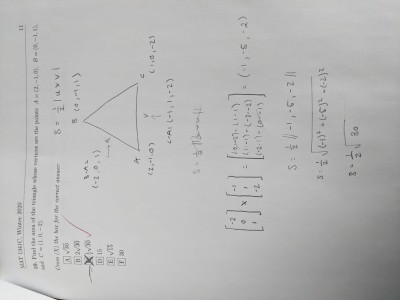 MAT 1341C, Winter 2020
11
Find the area of the triangle whose vertices are the points A = (2,-1,0), B = (0,-1,1),
and C = (1,0,-2).
Cross (X) the box for the correct answer:
A √30
B 2√30
½√30
D 15
E √15
F 30
S = ½ |u x v|
B (0,-1,1)
B-A =
(-2,0,1)
A
(2,-1,0)
C
(1,0,-2)
v
C-A = (-1,1,-2)
[-2 0 1] x [-1 1 -2] =
= (-1,-5,-2)
S = ½ || -1, -5, -2 ||
S = ½ √(-1)² + (-5)² + (-2)²
S = ½ √30